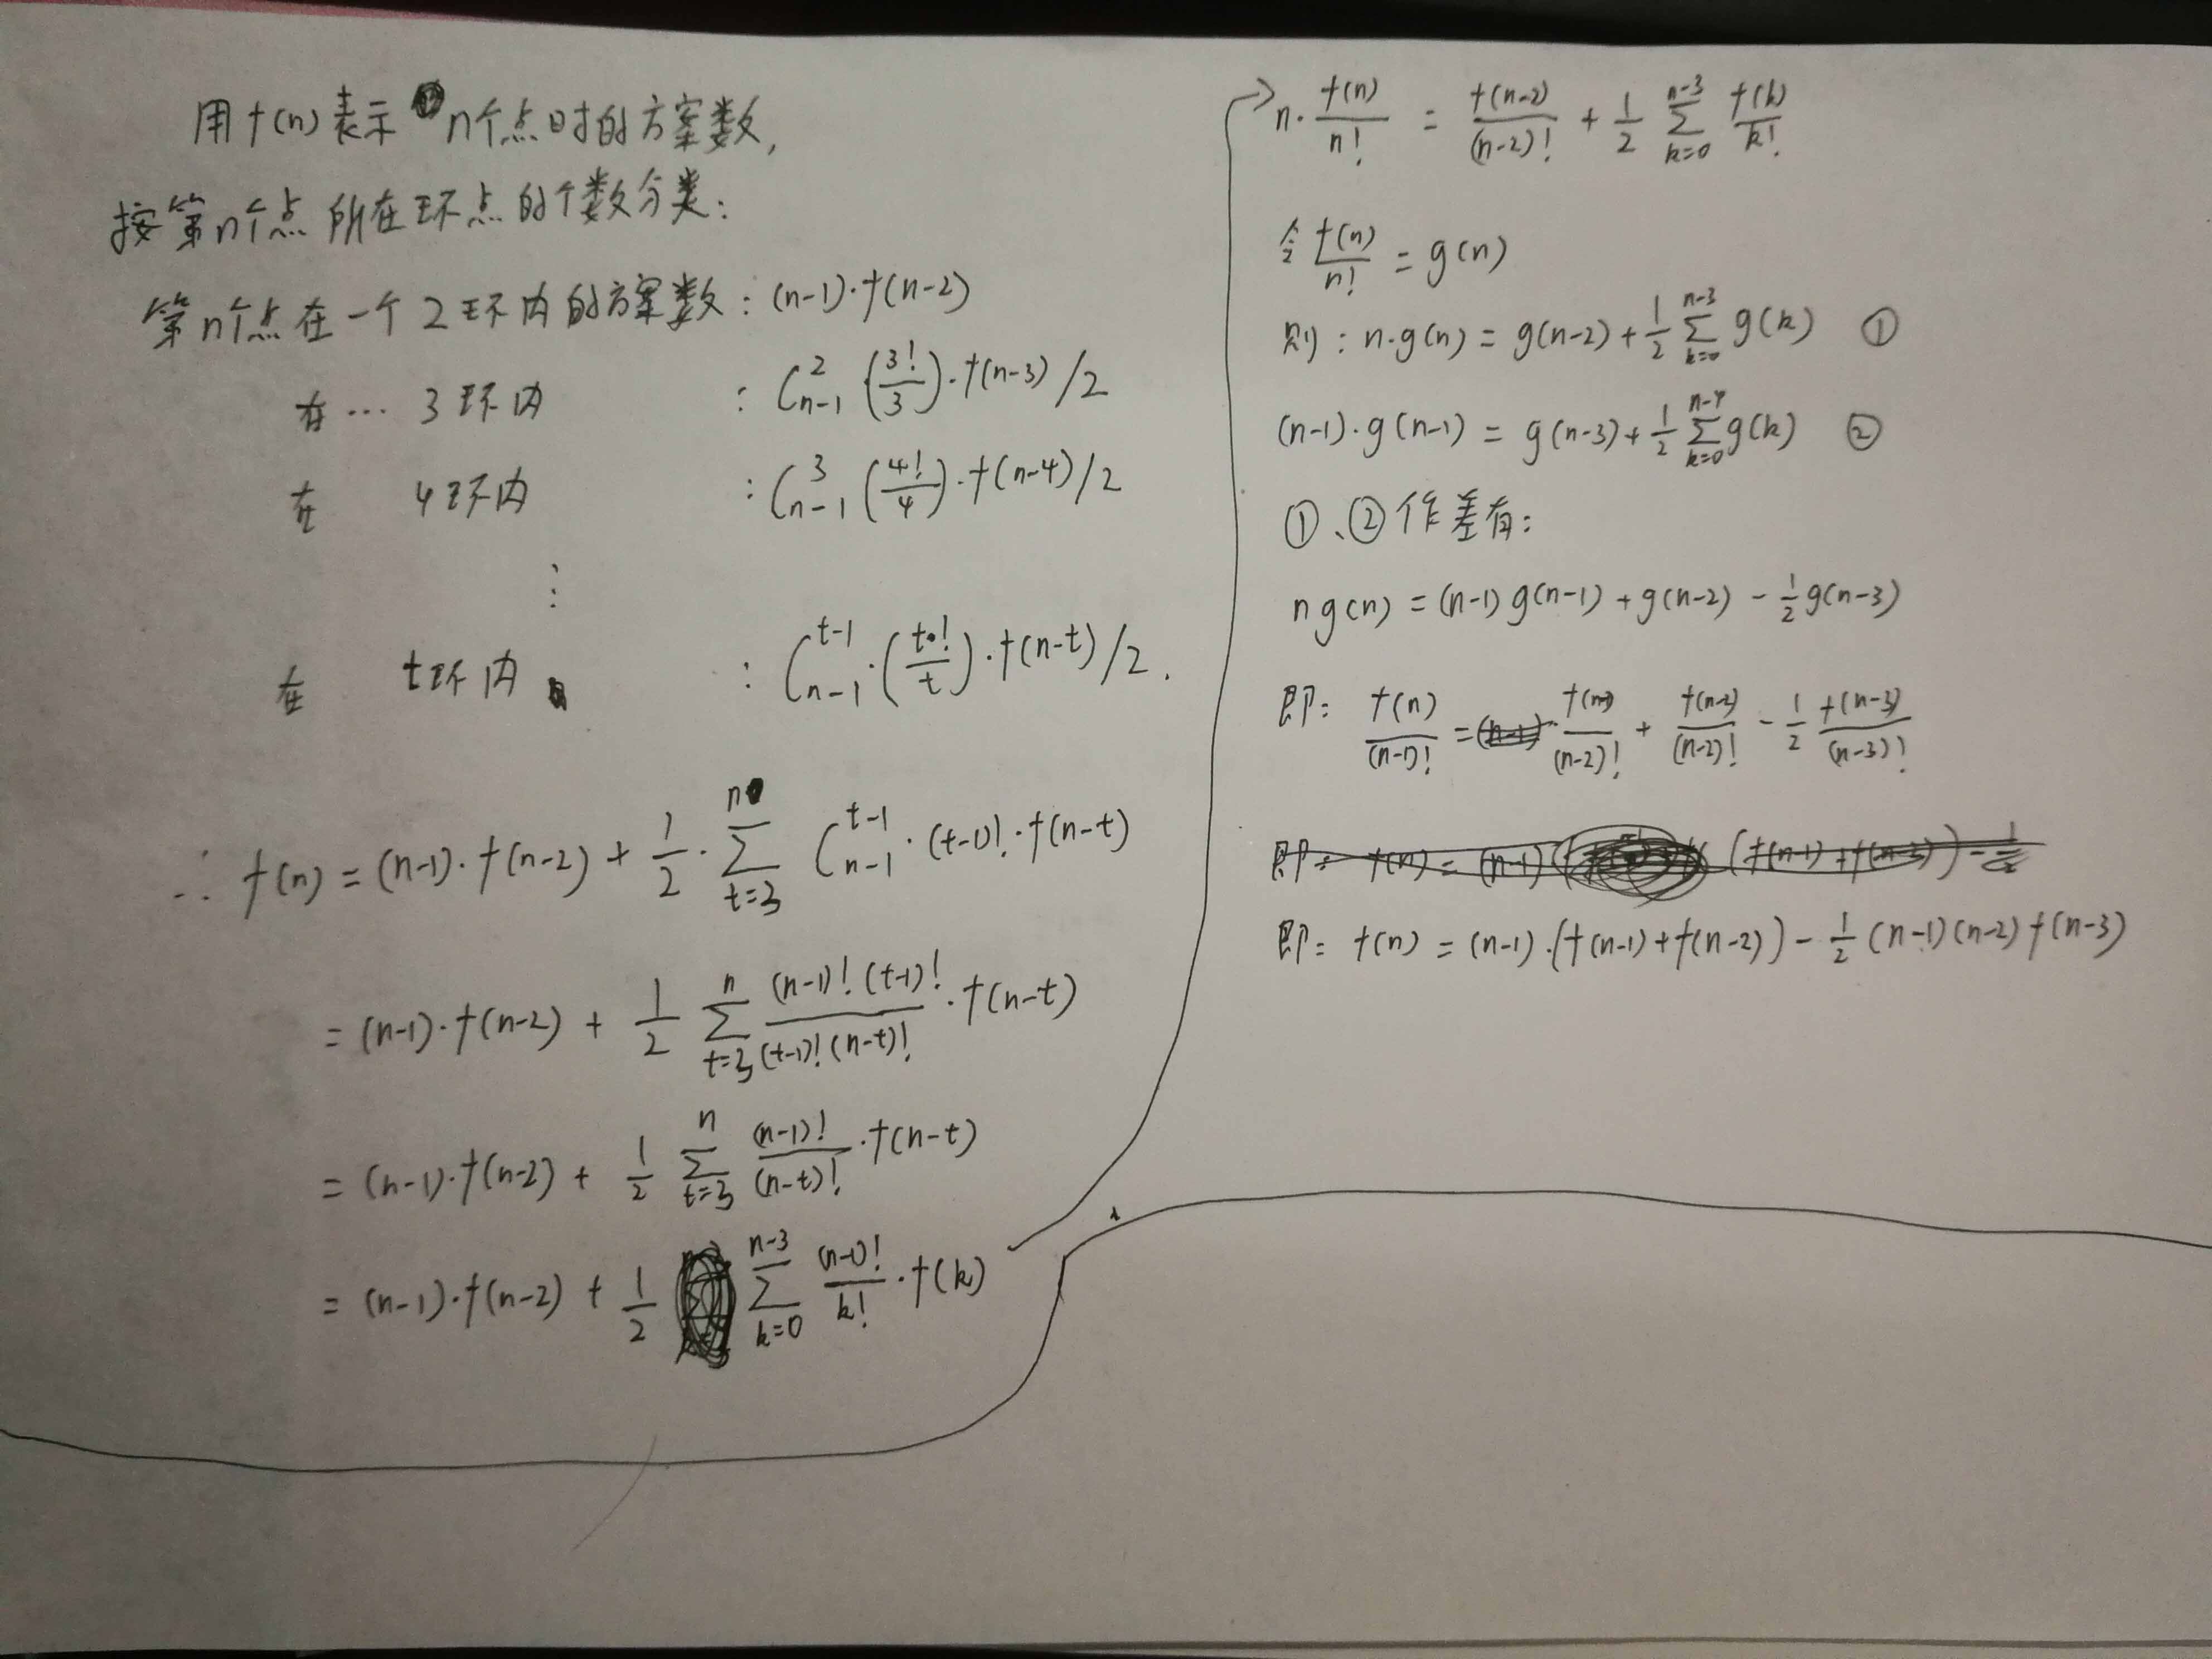 用f(n)表示n个点时的方案数,
按第n个点所在环点的个数分类:
第n个点在一个2环内的方案数: (n-1)·f(n-2)
在…3环内 : C_{n-1}^{2} (3!/3)·f(n-3)/2
在 4环内 : C_{n-1}^{3} (4!/4)·f(n-4)/2
⋮
在 t环内 : C_{n-1}^{t-1}·(t!/t)·f(n-t)/2.
∴ f(n) = (n-1)·f(n-2) + 1/2·∑_{t=3}^{n} C_{n-1}^{t-1}·(t-1)!·f(n-t)
= (n-1)·f(n-2) + 1/2 ∑_{t=3}^{n} (n-1)!(t-1)!/((t-1)!(n-t)!)·f(n-t)
= (n-1)·f(n-2) + 1/2 ∑_{t=3}^{n} (n-1)!/(n-t)!·f(n-t)
= (n-1)·f(n-2) + 1/2 ∑_{k=0}^{n-3} (n-1)!/k!·f(k)
n·f(n)/n! = f(n-2)/(n-2)! + 1/2 ∑_{k=0}^{n-3} f(k)/k!
令 f(n)/n! = g(n)
则: n·g(n) = g(n-2) + 1/2 ∑_{k=0}^{n-3} g(k) ①
(n-1)·g(n-1) = g(n-3) + 1/2 ∑_{k=0}^{n-4} g(k) ②
①、②作差有:
n g(n) = (n-1) g(n-1) + g(n-2) - 1/2 g(n-3)
即: f(n)/(n-1)! = f(n-1)/(n-2)! + f(n-2)/(n-2)! - 1/2 f(n-3)/(n-3)!
即: f(n) = (n-1)·(f(n-1)+f(n-2)) - 1/2 (n-1)(n-2) f(n-3)